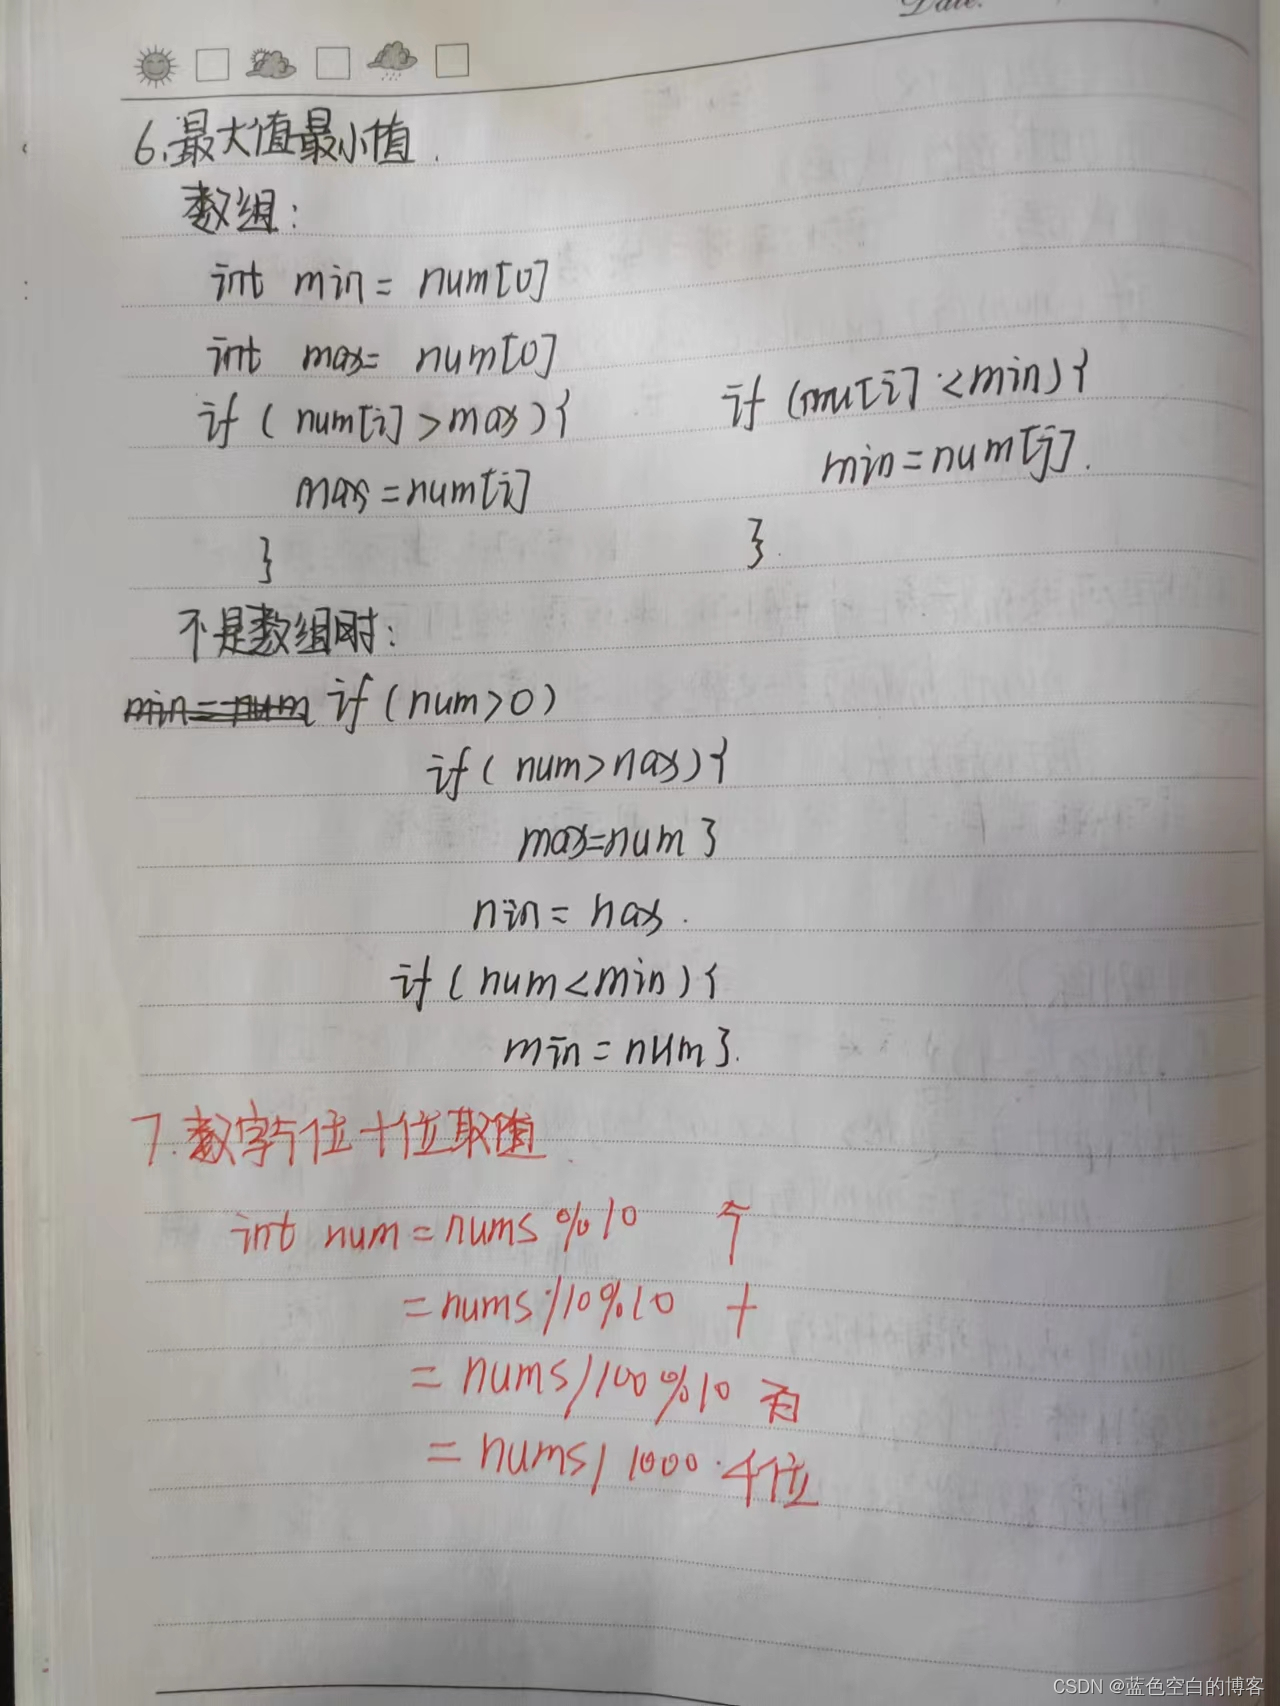 Date.
6.最大值最小值.
数组:
int min = num[0]
int max= num[0]
if ( num[i] >max){
max =num[i]
}
if (mu[i] <min){
min =num[j].
}.
不是数组时:
min = num if (num>0)
if ( num>nax){
max=num }
nin = nax.
if ( num<min){
min = num}.
7.数字个位十位取值.
int num = nums %10 个
= nums/10%10 十
= nums/100%10 百
= nums/1000.千位
CSDN @蓝色空白的博客